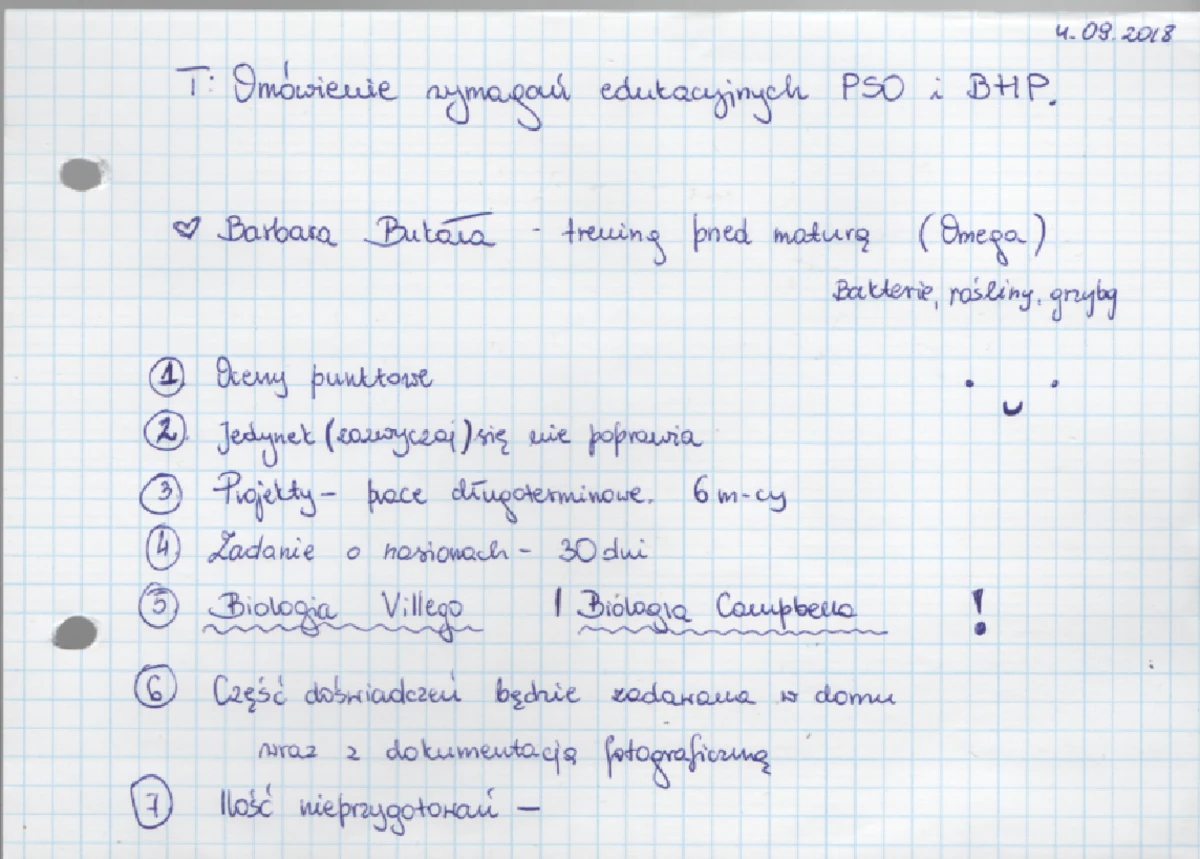 4.09.2018
T: Omówienie wymagań edukacyjnych PSO i BHP.
♡ Barbara Bukała - trening przed maturą (Omega)
Bakterie, rośliny, grzyby
1 Oceny punktowe
2. Jedynek (zazwyczaj) się nie poprawia
3 Projekty - prace długoterminowe. 6 m-cy
4 Zadanie o nasionach - 30 dni
5 Biologia Villego | Biologia Campbella !
6 Część doświadczeń będzie zadawana w domu
wraz z dokumentacją fotograficzną
7 Ilość nieprzygotowań -